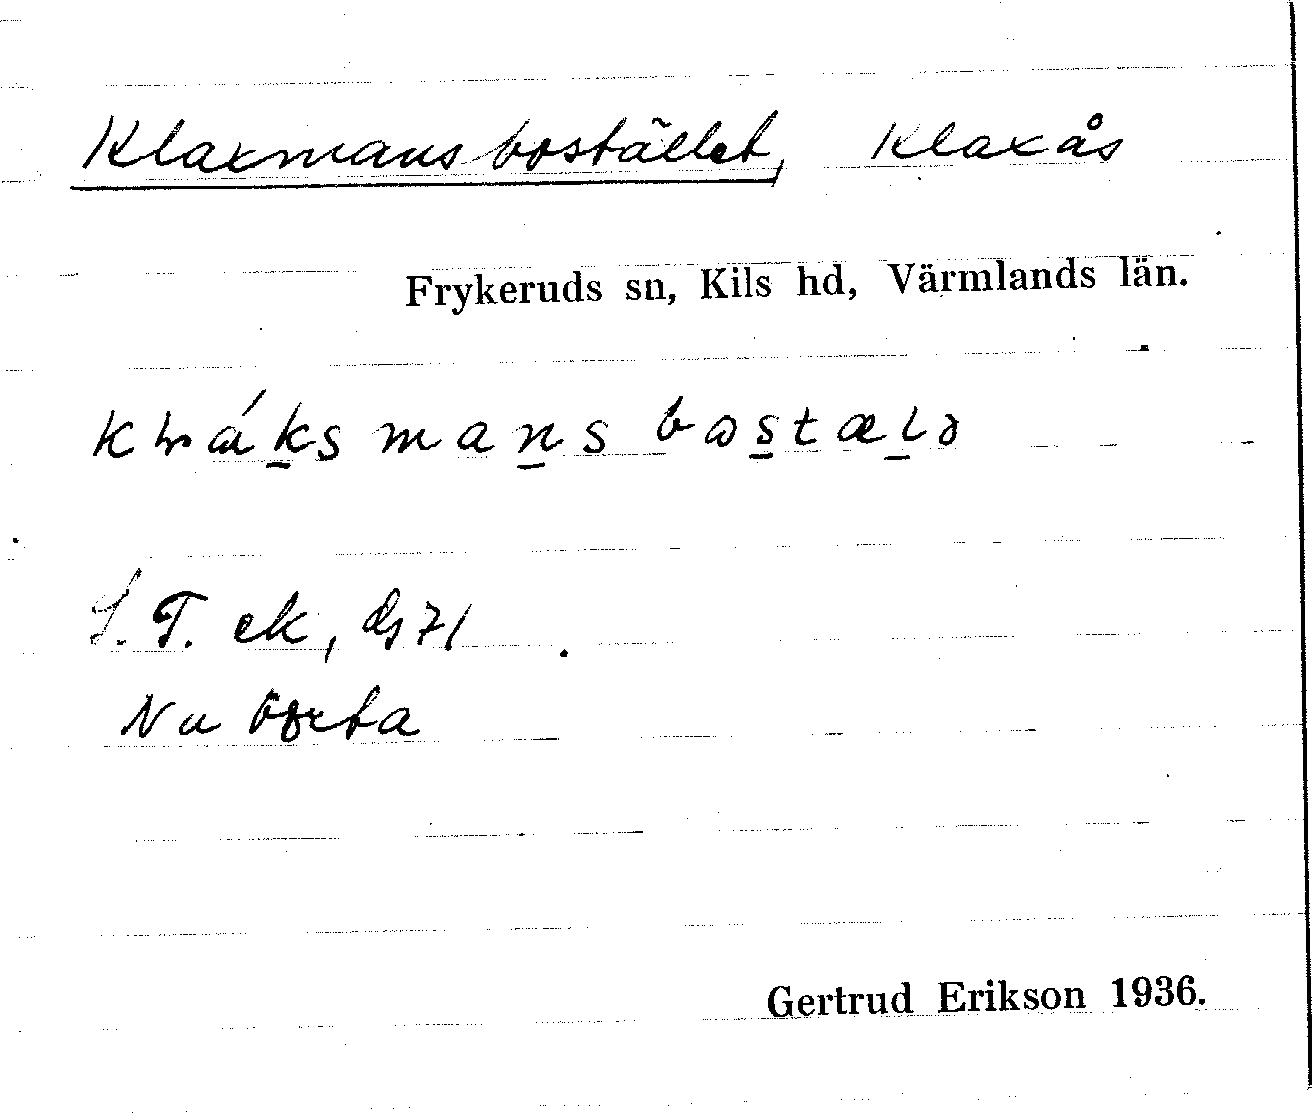 Klaxmansbostället, Klaxås
Frykeruds sn, Kils hd, Värmlands län.
mans bostælə
S. T. ek, ds 71
Nu borta
Gertrud Erikson 1936.